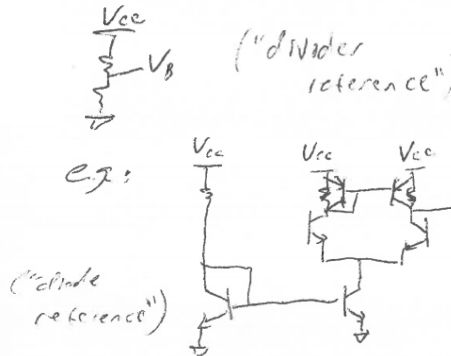 Vcc
VB
("divider
reference")
e.g:
Vcc
Vcc
Vcc
("diode
reference")